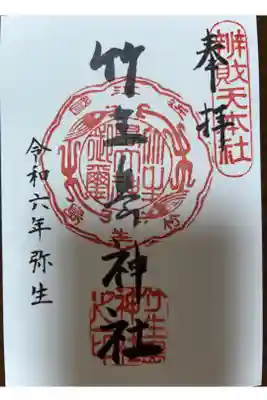 辨財天本社
奉拝
竹生島神社
令和六年弥生